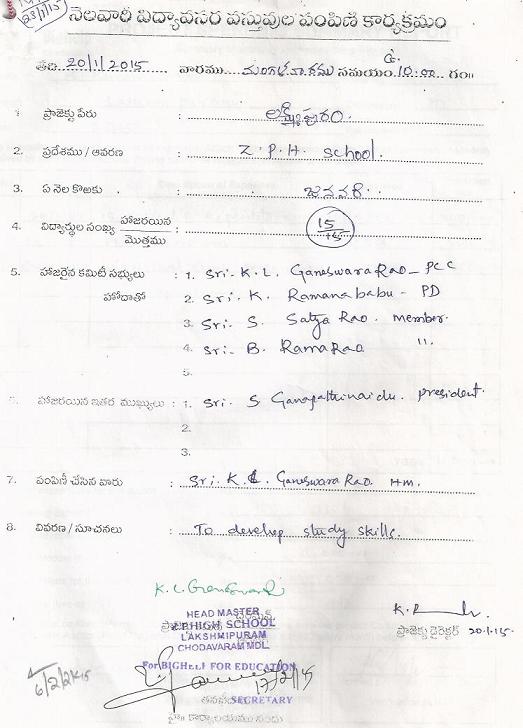 23/1/15
నెలవారీ విద్యావసర వస్తువుల పంపిణి కార్యక్రమం
తేది 20/1/2015 వారము మంగళవారము సమయం 10.00 గం॥
1. ప్రాజెక్టు పేరు : లక్ష్మీపురం.
2. ప్రదేశము / ఆవరణ : Z.P.H. School.
3. ఏ నెల కొఱకు : జనవరి.
4. విద్యార్థుల సంఖ్య హాజరయిన / మొత్తము : 15/15
5. హాజరైన కమిటీ సభ్యులు : 1. Sri. K.L. Ganeswara Rao - PCC
హోదాతో 2. Sri. K. Ramanababu - PD
3. Sri. S. Satya Rao. member.
4. Sri. B. Rama Rao "
5.
6. హాజరయిన ఇతర ముఖ్యులు : 1. Sri. S Ganapathinaidu. president.
2.
3.
7. పంపిణీ చేసిన వారు : Sri. K.L. Ganeswara Rao. HM.
8. వివరణ / సూచనలు : To develop study skills.
HEAD MASTER
Z.P.HIGH SCHOOL
LAKSHMIPURAM
CHODAVARAM MDL
ప్రాజెక్టు డైరెక్టర్ 20.1.15
For BIGHELP FOR EDUCATION
17/2/15
SECRETARY